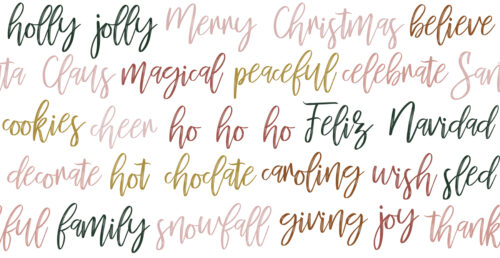 holly jolly Merry Christmas believe
ta Claus magical peaceful celebrate San
cookies cheer ho ho ho Feliz Navidad
decorate hot choclate caroling wish sled
ful family snowfall giving joy thank